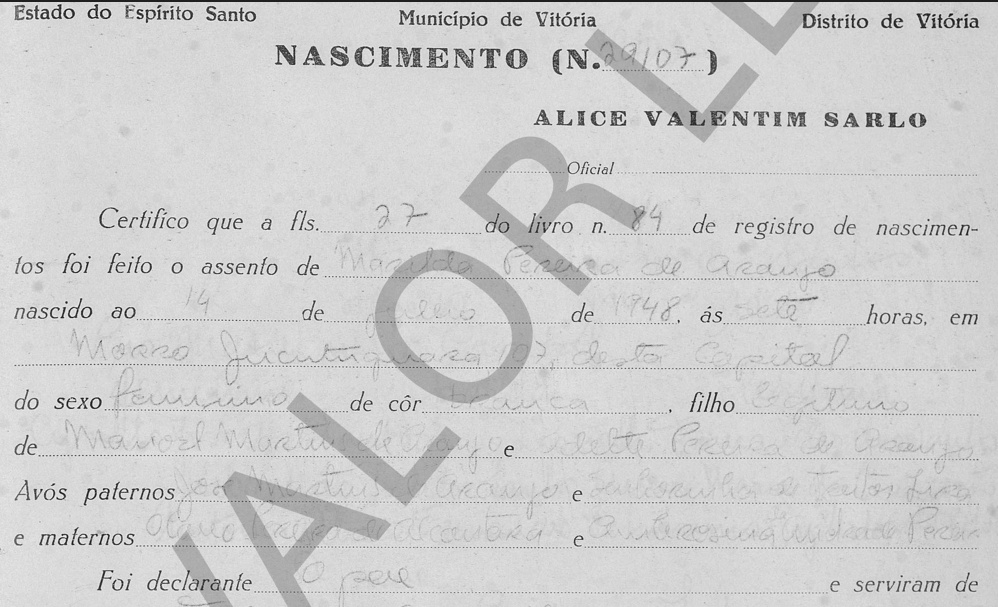 Estado do Espírito Santo Município de Vitória Distrito de Vitória
NASCIMENTO (N. 29107)
ALICE VALENTIM SARLO
Oficial
Certifico que a fls. 27 do livro n. 84 de registro de nascimen-
tos foi feito o assento de Marilda Pereira de Araujo
nascido ao 14 de julho de 1948, ás sete horas, em
Morro Jucutuquara 107, desta Capital
do sexo feminino de côr branca, filho legitimo
de Manoel Martins de Araujo e Pereira de Araujo
Avós paternos José Martins Araujo e
e maternos Pereira de Alcantara e Ambrosina de
Foi declarante O pae e serviram de
VALOR LE